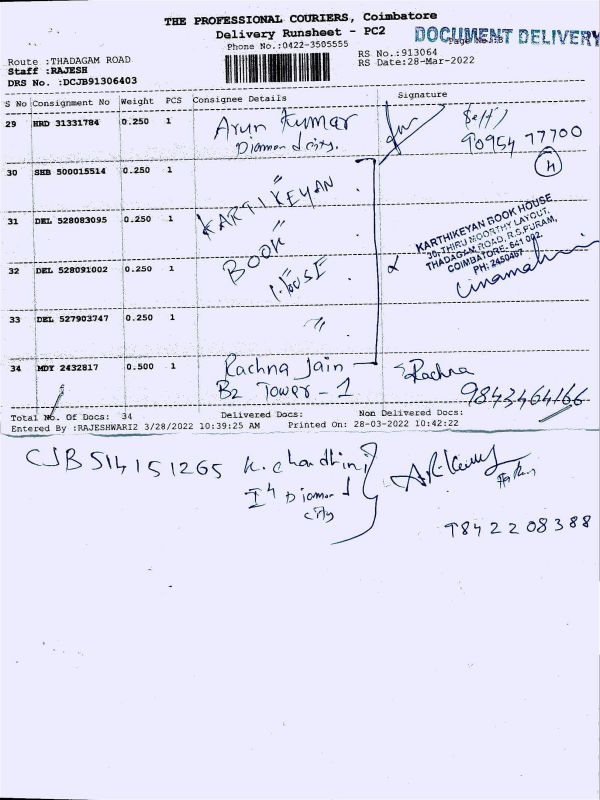 THE PROFESSIONAL COURIERS, Coimbatore
Delivery Runsheet - PC2
DOCUMENT DELIVERY
Phone No.:0422-3505555
Route :THADAGAM ROAD
RS No.:913064
Staff :RAJESH
RS Date:28-Mar-2022
DRS No. :DCJB91306403
S No Consignment No Weight PCS Consignee Details Signature
29 HRD 31331784 0.250 1 Arun Kumar
Diamond city.
Self)
90954 77700
4
30 SHB 500015514 0.250 1 "
KARTIKEYAN
31 DEL 528083095 0.250 1 "
BOOK
KARTHIKEYAN BOOK HOUSE
30, THIRU MOORTHY LAYOUT,
THADAGAM ROAD, R.S.PURAM,
COIMBATORE- 641 002.
PH: 2450467
32 DEL 528091002 0.250 1 "
HOUSE
33 DEL 527903747 0.250 1 "
34 MDY 2432817 0.500 1 Rachna Jain
B2 Tower - 1
Rachna
9843464166
Total No. Of Docs: 34 Delivered Docs: Non Delivered Docs:
Entered By :RAJESHWARI2 3/28/2022 10:39:25 AM Printed On: 28-03-2022 10:42:22
CJB 514151265 K. Chandhini
Diamond
city
9842208388